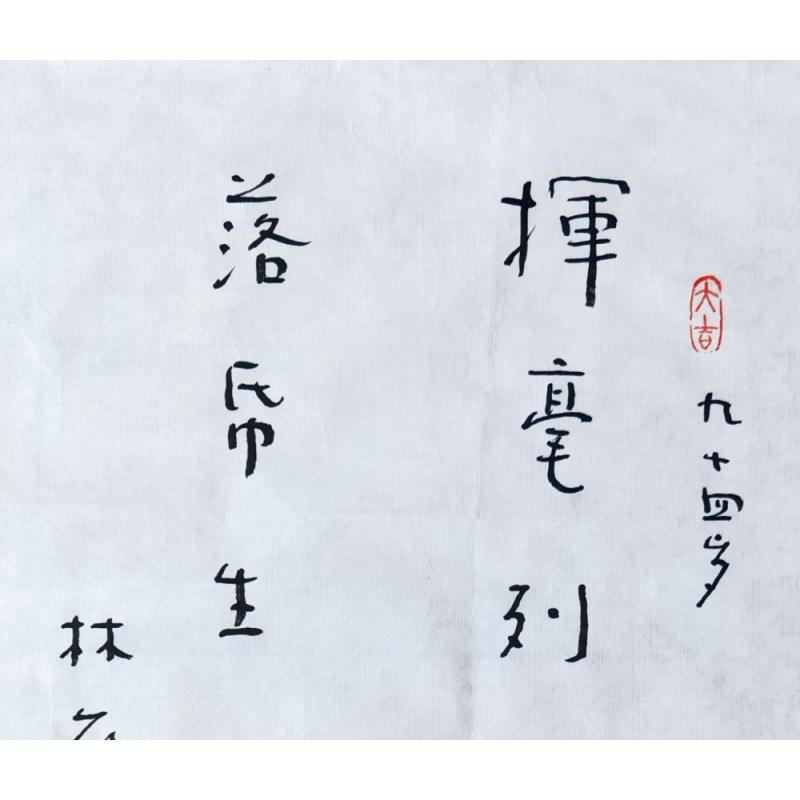 九十四岁
揮毫列
落帋生
林